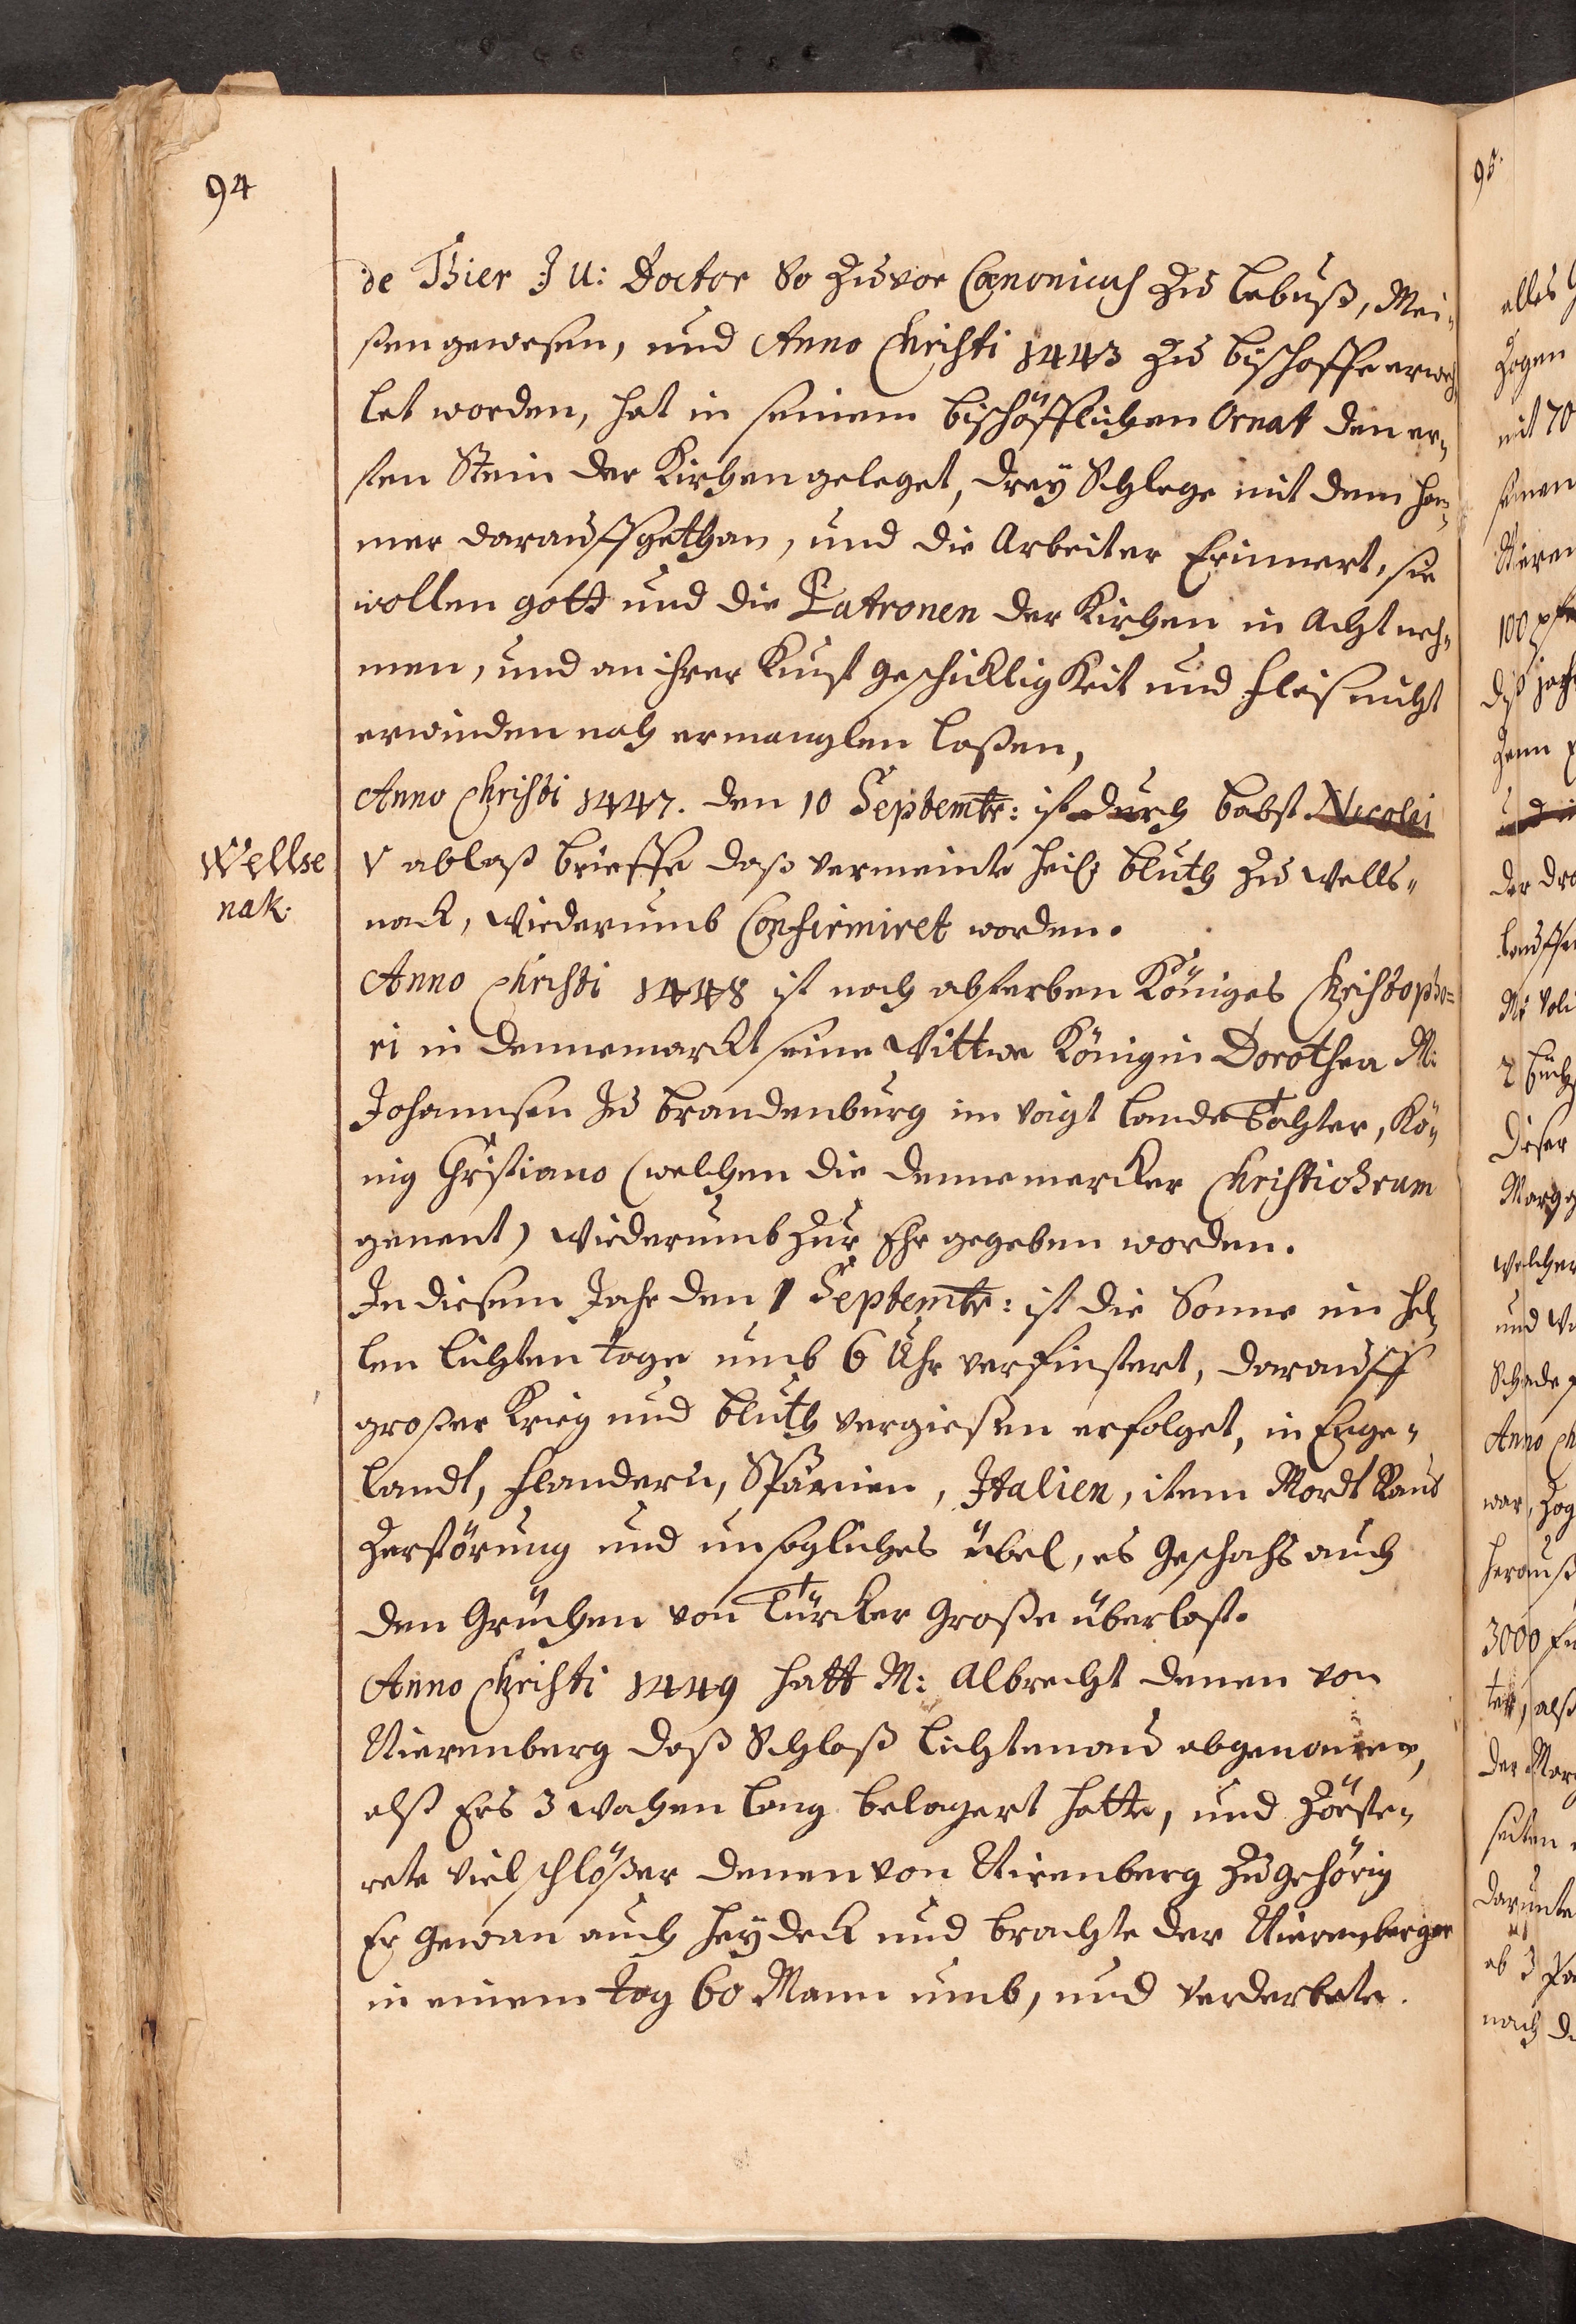 94
de Thier J U: Doctor So Zuvor Canonicus Zu Lebuß, Mei„
ßen gewesen, und Anno Christi 1443 Zu bischoffe erweh„
let worden, hat in seinem bischöfflichen Ornat den er„
sten Stein der Kirchen geleget, drey Schlege mit dem ham„
mer darauff gethan, und die Arbeiter Erinnert, sie
wollen gott und die Patronen der Kirchen in Acht neh„
men, und an ihrer Kunst geschickligkeit und fleis nicht
erwinden noch ermanglen laßen,
Anno Christi 1447. den 10 Septembr: ist durch babst Nicolai
V ablaß brieffe daß vermeinte heil: bluth zu Wells„
nack, wiederumb Confirmiret worden.
Wellse
nak.
Anno Christi 1448 ist nach absterben Königes Christopho=
ri in Dennemarckt seine Wittwe Königin Dorothea M:
Johannsen zu brandenburg im voigt lande Tochter, Kö„
nig Christiano (welchen die Dennemercker Christiernum
genent) wiederumb Zur Ehe gegeben worden.
In diesem Jahr den 1 Septembr: ist die Sonne im hel„
len lichten tage umb 6 Uhr verfinstert, darauff
großer Krieg und bluth vergießen erfolget, in Enge„
landt, flandern, Spanien, Italien, item Mordt Raub
Zerstörung und unsegliches übel, es geschahe auch
den Griechen von Türcken Große überlast.
Anno Christi 1449 hatt M: Albrecht denen von
Nierenberg daß Schloß lichtenau abgenommen,
alß Ers 3 wochen lang belagert hatte, und Zörste„
rete viel schlößer denen von Nirenberg Zugehörig
Er gewan auch heydeck und brachte der Nierenberger
in einem tag 60 Mann umb, und verderbete.
95.
alles
Zogen
mit 70
seinen
Nieren
100
der